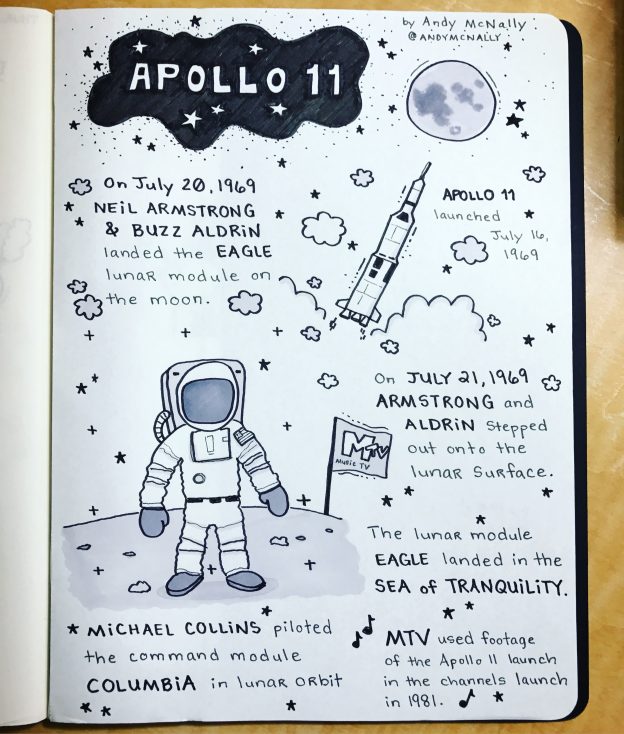 by Andy McNally
@ANDYMCNALLY
APOLLO 11
On July 20, 1969
NEIL ARMSTRONG
& BUZZ ALDRIN
landed the EAGLE
lunar module on
the moon.
APOLLO 11
launched
July 16,
1969
On JULY 21, 1969
ARMSTRONG and
ALDRIN stepped
out onto the
lunar surface.
MTV
MUSIC TV
The lunar module
EAGLE landed in the
SEA of TRANQUILITY.
MICHAEL COLLINS piloted
the command module
COLUMBIA in lunar orbit
MTV used footage
of the Apollo 11 launch
in the channels launch
in 1981.